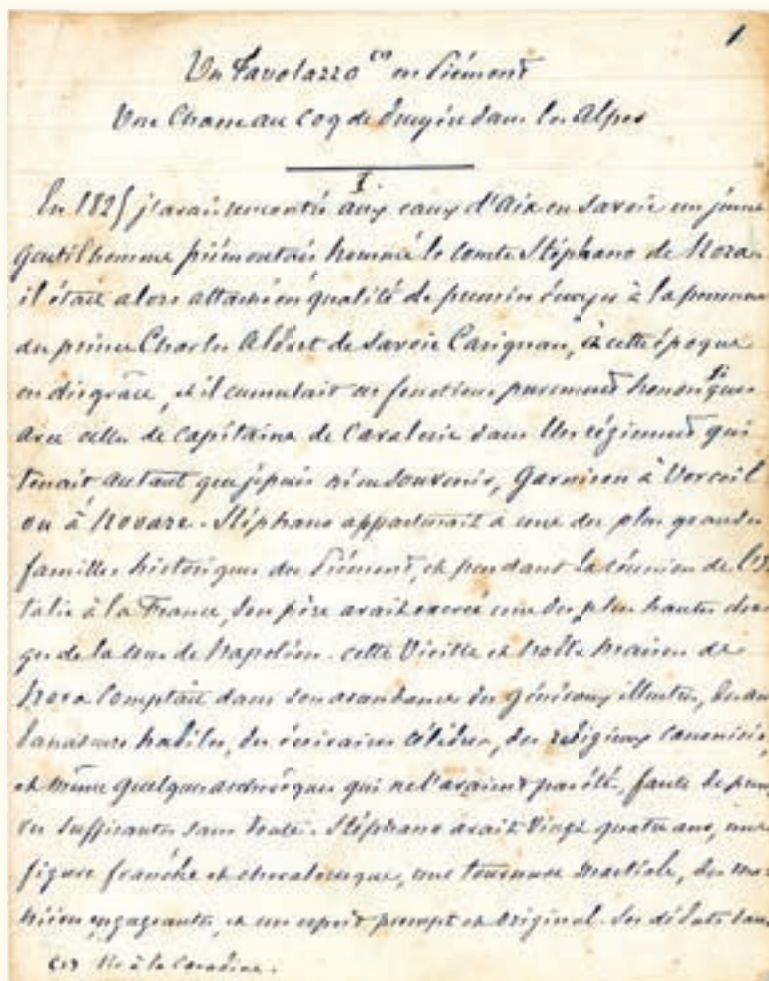 1
Un Tavolazzo (1) en Piémont
Une Chasse au coq de bruyère dans les Alpes
I.
En 1825 j'avais rencontré aux eaux d'Aix en Savoie un jeune
gentilhomme piémontais nommé le comte Stéphano de Nora
il était alors attaché en qualité de premier écuyer à la personne
du prince Charles Albert de Savoie Carignan, à cette époque
en disgrâce, et il cumulait ces fonctions purement honorifiques
avec celles de capitaine de Cavalerie dans un régiment qui
tenait autant que je puis m'en souvenir, garnison à Verceil
ou à Novare. Stéphano appartenait à une des plus grandes
familles historiques du Piémont, et pendant la réunion de l'I
talie à la France, son père avait exercé une des plus hautes char
ges de la cour de Napoléon. cette Vieille et noble maison de
Nora comptait dans son ascendance des généraux illustres, des am
bassadeurs habiles, des écrivains célèbres, des religieux canonisés,
et même quelques archevêques qui ne l'avaient pas été, faute de preu
ves suffisantes sans doute. Stéphano avait vingt quatre ans, une
figure franche et chevaleresque, une tournure martiale, des ma
nières engageantes, et un esprit prompt et original. Ses débuts dans
(1) Tir à la Carabine.